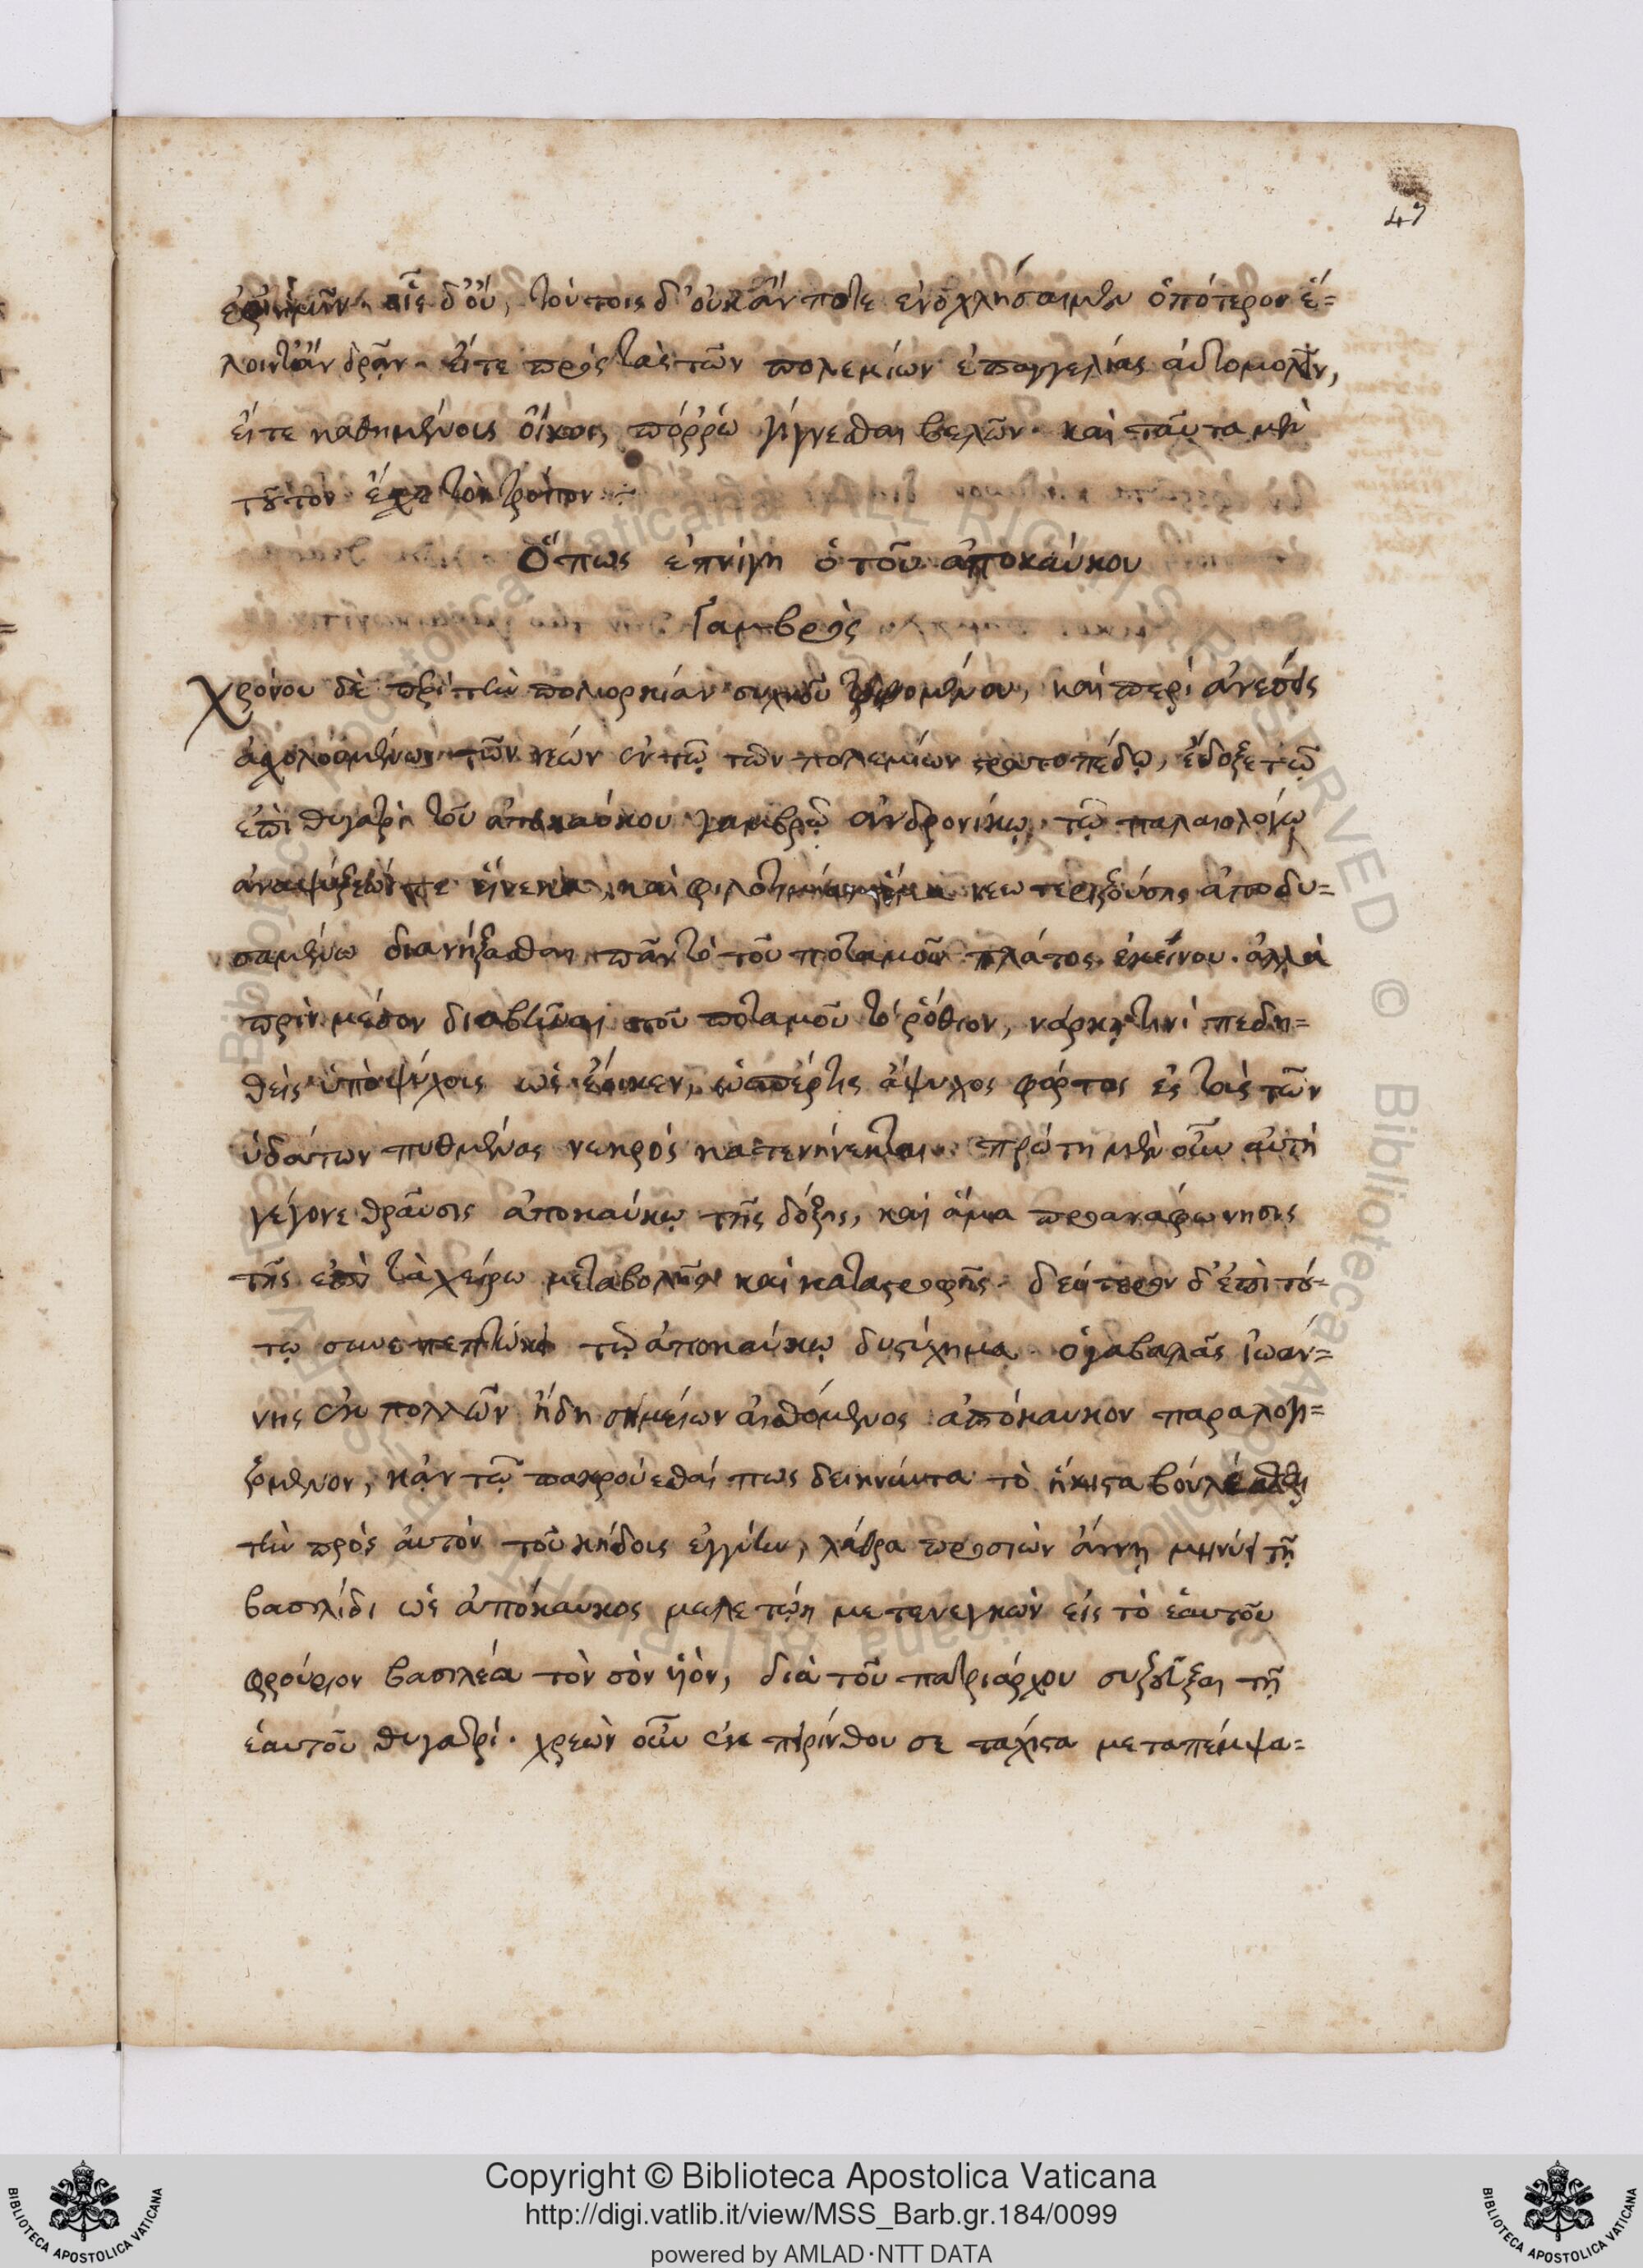 49
ἐφ' ἡμῖν. οἷς δ' οὔ, τούτοις δ' οὐκ ἄν ποτε ἐνοχλήσαιμεν ὁπότερον ἕ=
λοιντ' ἂν δρᾶν. εἴτε πρὸς τὰς τῶν πολεμίων ἐπαγγελίας αὐτομολεῖν,
εἴτε καθημένοις οἴκοις πόρρω γίγνεσθαι βελῶν. καὶ ταῦτα μὲν
τοῦτον ἔχει τὸν τρόπον :
Ὅπως ἐπνίγη ὁ τοῦ ἀποκαύκου
Γαμβρὸς
Χρόνου δὲ περὶ τὴν πολιορκίαν συχνοῦ τριβομένου, καὶ περὶ
ἀσχολουμένων τῶν νεῶν ἐν τῷ τῶν πολεμίων στρατοπέδῳ, ἔδοξε τῷ
ἐπὶ θυγατρὶ τοῦ ἀποκαύκου γαμβρῷ ἀνδρονίκῳ τῷ παλαιολόγῳ
ἀναψύξεώς τε εἵνεκα, καὶ φιλοτιμίας ἅμα νεωτεριζούσης ἀποδυ=
σαμένῳ διανήξασθαι πᾶν τὸ τοῦ ποταμοῦ πλάτος ἐκείνου. ἀλλὰ
πρὶν μέσον διαβῆναι τοῦ ποταμοῦ τὸ ῥόθιον, νάρκῃ τινὶ πεδη=
θεὶς ὑπὸ ψύχους ὡς ἔοικεν, ὡσπέρ τις ἄψυχος φόρτος ἐς τοὺς τῶν
ὑδάτων πυθμένας νεκρὸς κατενήνεκται. πρώτη μὲν οὖν αὐτὴ
γέγονε θραῦσις ἀποκαύκῳ τῆς δόξης, καὶ ἅμα προαναφώνησις
τῆς ἐπὶ τὰ χείρω μεταβολῆς καὶ καταστροφῆς. δεύτερον δ' ἐπὶ τού=
τῳ συνεπεπτώκει τῷ ἀποκαύκῳ δυστύχημα. ὁ γαβαλᾶς ἰωάν=
νης ἐκ πολλῶν ἤδη σημείων αἰσθόμενος ἀπόκαυκον παραλογι=
ζόμενον, κἀν τῷ παρακρούεσθαί πως δεικνύντα τὸ ἥκιστα βούλεσθαι
τὴν πρὸς αὐτὸν τοῦ κήδους ἐγγύην, λάθρα προσιὼν ἄννῃ μηνύει τῇ
βασιλίδι ὡς ἀπόκαυκος μελετῴη μετενεγκὼν εἰς τὸ ἑαυτοῦ
φρούριον βασιλέα τὸν σὸν υἱὸν, διὰ τοῦ πατριάρχου συζεῦξαι τῇ
ἑαυτοῦ θυγατρί. χρεὼν οὖν ἐκ πειρίνθου σε τάχιστα μεταπέμψα=
Copyright © Biblioteca Apostolica Vaticana
http://digi.vatlib.it/view/MSS_Barb.gr.184/0099
powered by AMLAD·NTT DATA
BIBLIOTECA APOSTOLICA VATICANA
BIBLIOTECA APOSTOLICA VATICANA